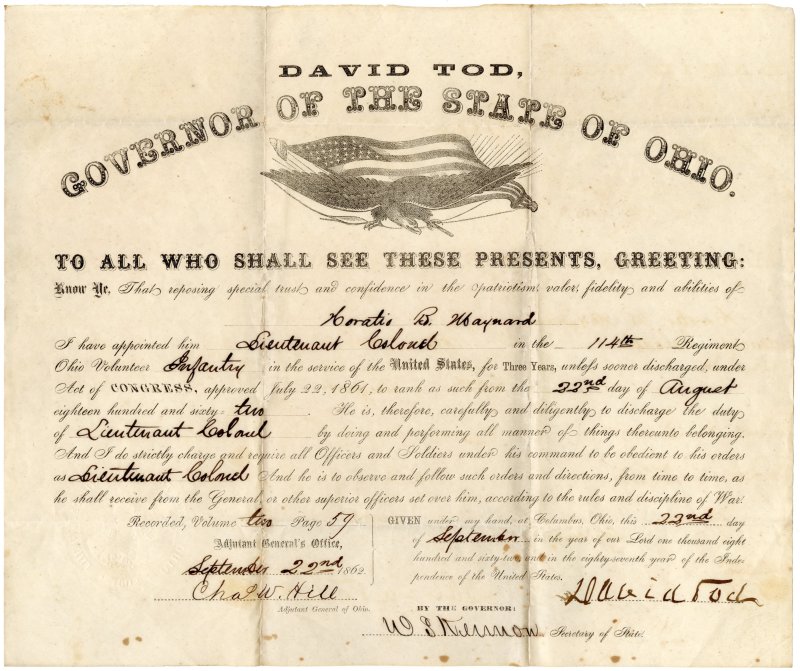 DAVID TOD,
GOVERNOR OF THE STATE OF OHIO.
TO ALL WHO SHALL SEE THESE PRESENTS, GREETING:
Know Ye, That reposing special trust and confidence in the patriotism, valor, fidelity and abilities of
Horatio B. Maynard
I have appointed him Lieutenant Colonel in the 114th Regiment
Ohio Volunteer Infantry in the service of the United States, for Three Years, unless sooner discharged, under
Act of CONGRESS, approved July 22, 1861, to rank as such from the 22nd day of August
eighteen hundred and sixty-two He is, therefore, carefully and diligently to discharge the duty
of Lieutenant Colonel by doing and performing all manner of things thereunto belonging.
And I do strictly charge and require all Officers and Soldiers under his command to be obedient to his orders
as Lieutenant Colonel And he is to observe and follow such orders and directions, from time to time, as
he shall receive from the General, or other superior officers set over him, according to the rules and discipline of War.
Recorded, Volume two Page 59
Adjutant General's Office,
September 22nd 1862
Chas W. Hill
Adjutant General of Ohio.
GIVEN under my hand, at Columbus, Ohio, this 22nd day
of September in the year of our Lord one thousand eight
hundred and sixty-two and in the eighty-seventh year of the Inde-
pendence of the United States.
David Tod
BY THE GOVERNOR:
W S Kennon Secretary of State.